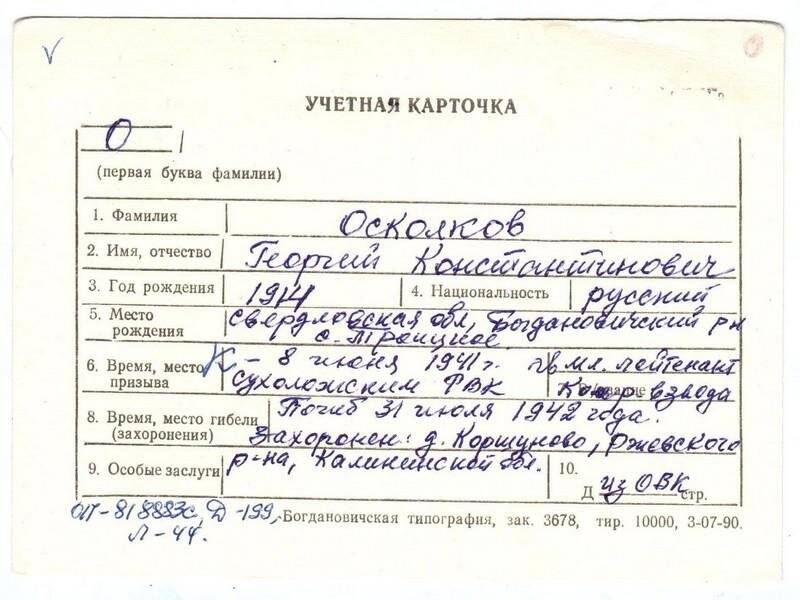 УЧЕТНАЯ КАРТОЧКА
О
(первая буква фамилии)
1. Фамилия Осколков
2. Имя, отчество Георгий Константинович
3. Год рождения 1914 4. Национальность русский
5. Место рождения Свердловская обл, Богдановичский р-н
с. Троицкое
6. Время, место призыва - 8 июня 1941г. мл. лейтенант
Сухоложским РВК Ком-р взвода
8. Время, место гибели (захоронения) Погиб 31 июля 1942 года.
Захоронен: д. Коршуново, Ржевского
9. Особые заслуги р-на, Калининской обл. 10.
Д из ОВК стр.
оп-818883с, Д-199, Богдановичская типография, зак. 3678, тир. 10000, 3-07-90.
Л-44.